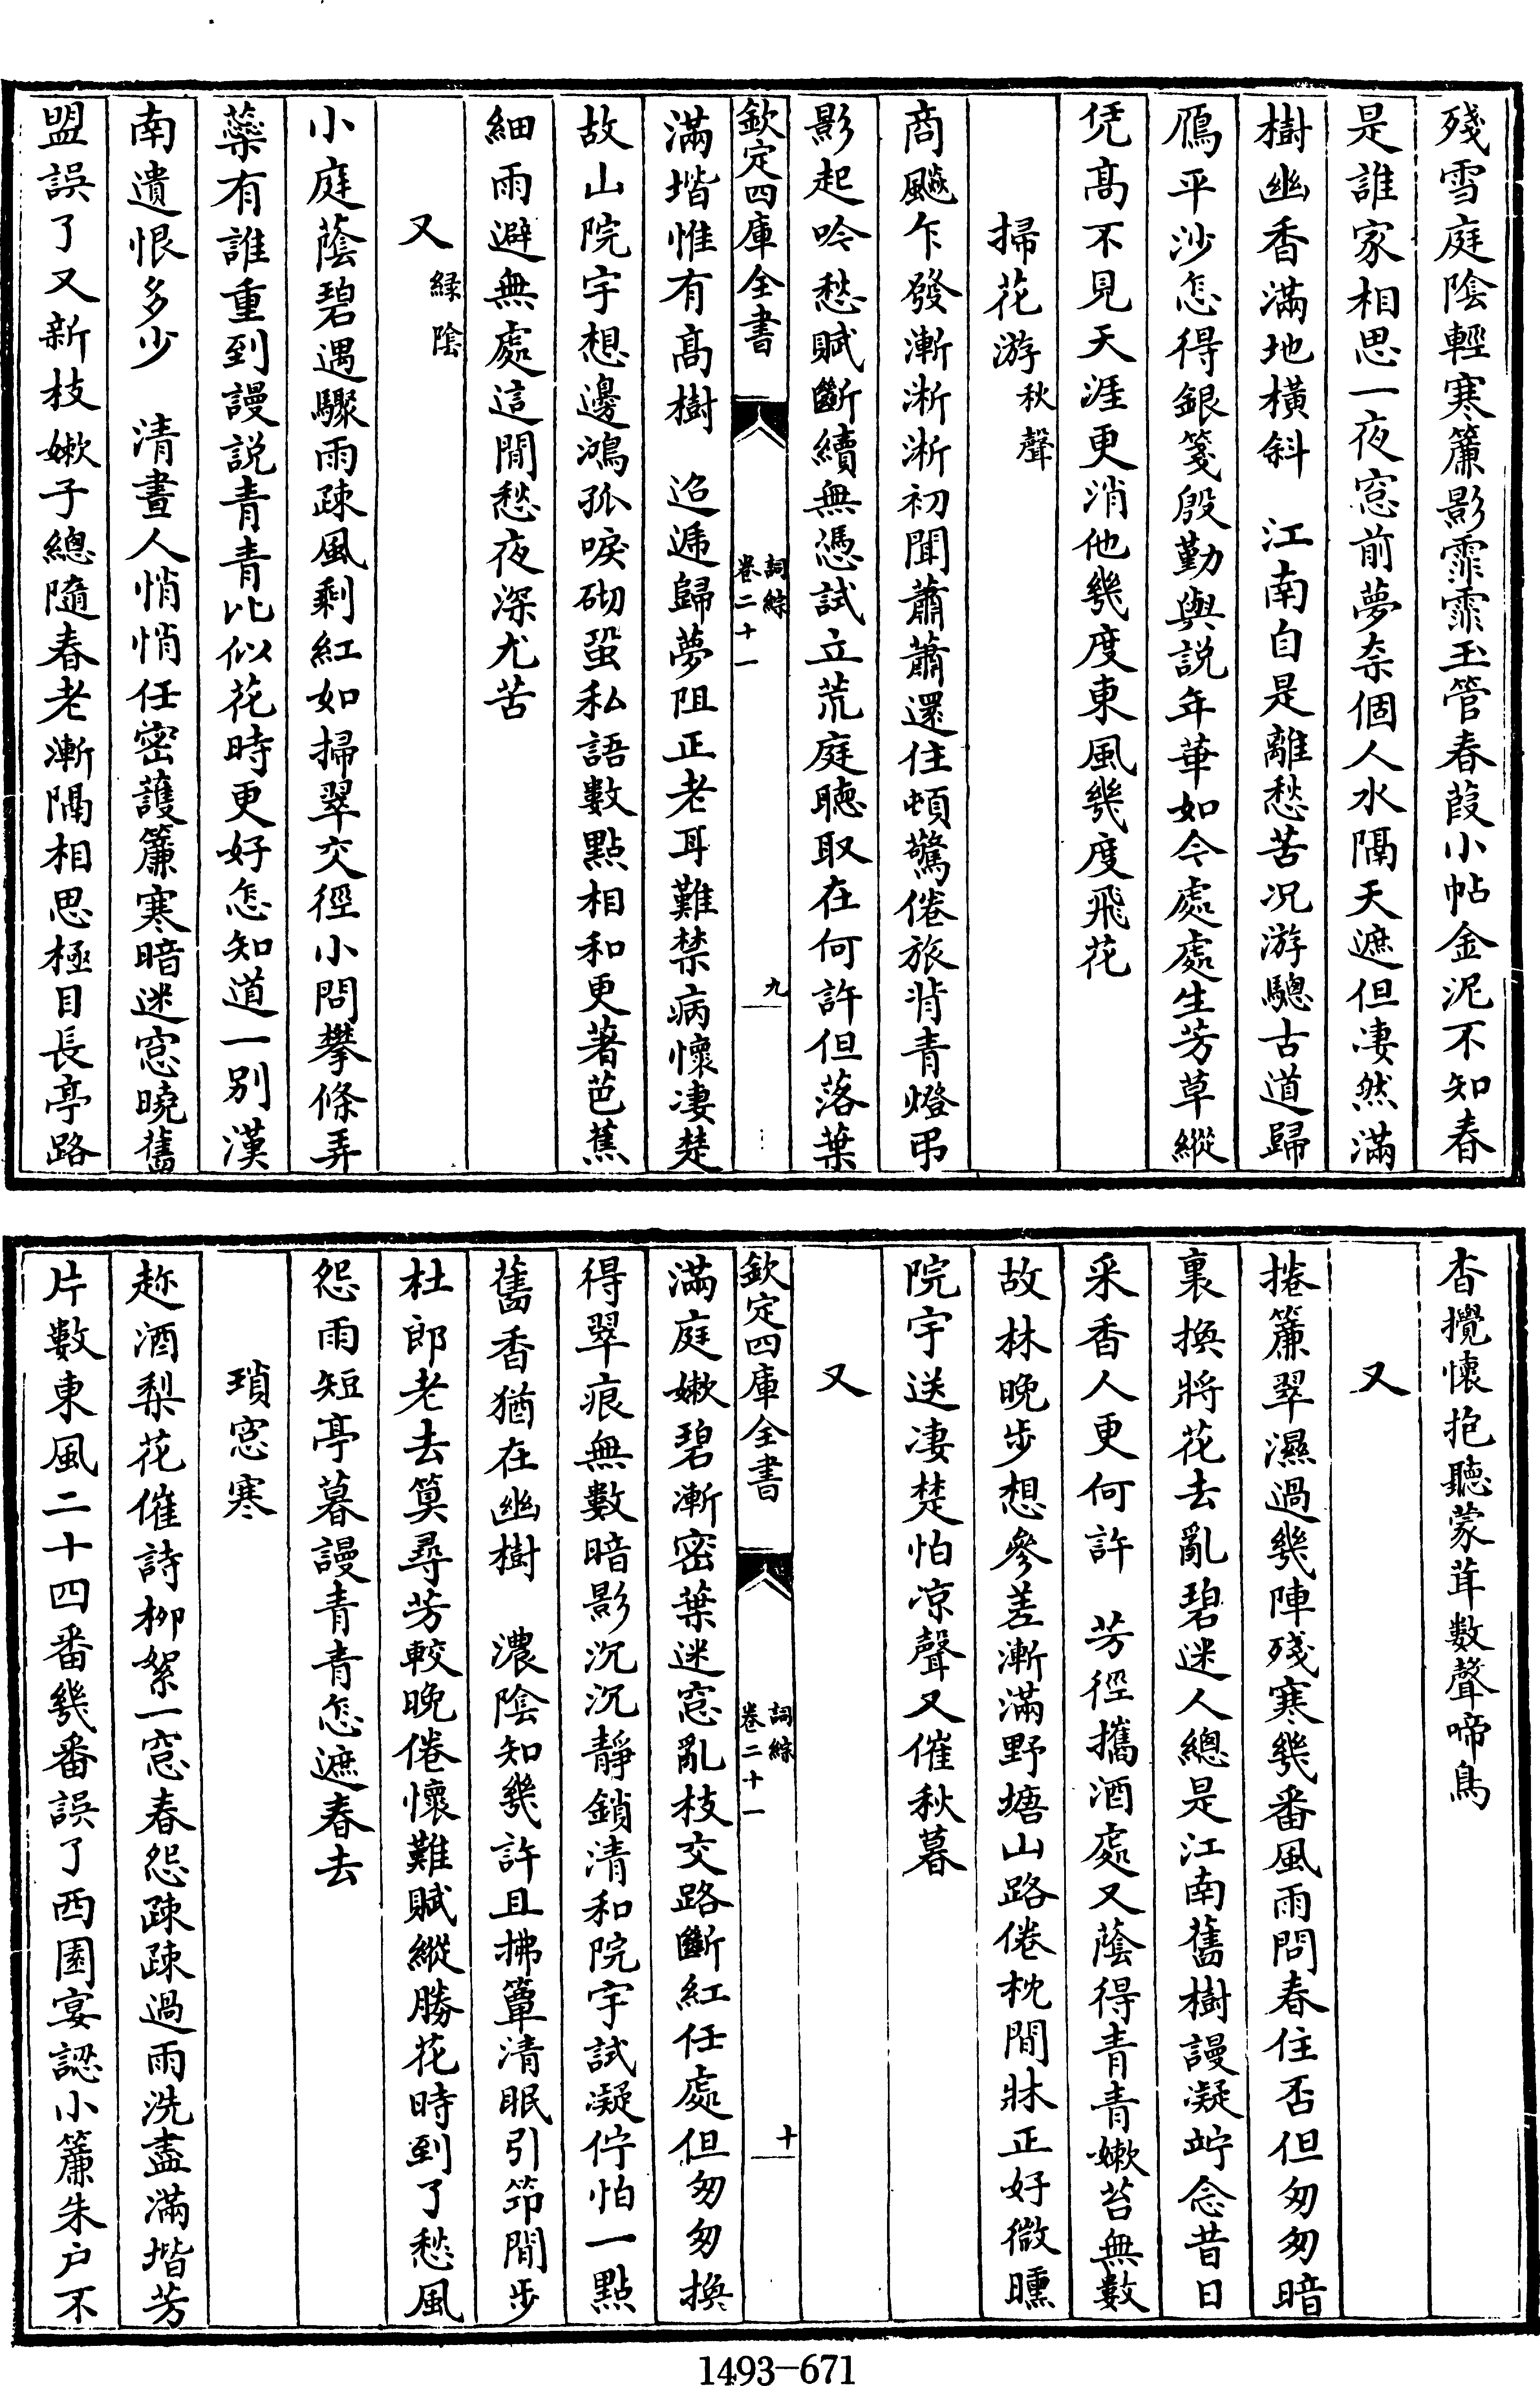 殘雪庭陰輕寒簾影霏霏玉管春葭小帖金泥不知春
是誰家相思一夜窓前夢奈個人水隔天遮但淒然滿
樹幽香滿地橫斜　江南自是離愁苦况游驄古道歸
鴈平沙怎得銀箋殷勤與説年華如今處處生芳草縱
凭髙不見天涯更消他幾度東風幾度飛花
掃花游秋聲
商飈乍發漸淅淅初聞蕭蕭還住頓驚倦旅背青燈弔
影起吟愁賦斷續無憑試立荒庭聴取在何許但落葉
欽定四庫全書
詞綜
卷二十一
九
滿堦惟有髙樹　迢遞歸夢阻正老耳難禁病懷凄楚
故山院宇想邊鴻孤唳砌蛩私語數點相和更著芭蕉
細雨避無處這閒愁夜深尤苦
又緑陰
小庭蔭碧遇驟雨疎風剩紅如掃翠交徑小問攀條弄
蘂有誰重到謾説青青比似花時更好怎知道一别漢
南遺恨多少　清晝人悄悄任密護簾寒暗迷窓曉舊
盟誤了又新枝嫩子總隨春老漸隔相思極目長亭路
杳攪懷抱聽蒙茸數聲啼鳥
又
捲簾翠濕過幾陣殘寒幾番風雨問春住否但匆匆暗
裏換將花去亂碧迷人總是江南舊樹謾凝竚念昔日
采香人更何許　芳徑攜酒處又蔭得青青嫩苔無數
故林晩步想參差漸滿野塘山路倦枕閒牀正好微曛
院宇送凄楚怕凉聲又催秋暮
又
欽定四庫全書
詞綜
卷二十一
十
滿庭嫩碧漸密葉迷窓亂枝交路斷紅任處但匆匆換
得翠痕無數暗影沉沉靜鎖清和院宇試凝佇怕一點
舊香猶在幽樹　濃陰知幾許且拂簟清眠引笻閒步
杜郎老去算尋芳較晩倦懷難賦縱勝花時到了愁風
怨雨短亭暮謾青青怎遮春去
瑣窓寒
趂酒梨花催詩柳絮一窓春怨疎疎過雨洗盡滿堦芳
片數東風二十四番幾番誤了西園宴認小簾朱户不
1493-671